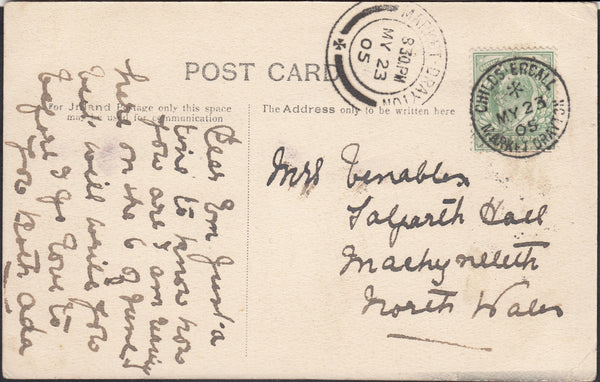 POST CARD
For Inland Postage only this space
may be used for communication
The Address only to be written here
MARKET-DRAYTON
8.30PM
MY 23
05
CHILDS-ERCALL
MY 23
05
MARKET DRAYTON
Mrs Venables
Talgarth Hall
Machynlleth
North Wales
Dear Em Just a
line to know how
you are I am
here on the 6 of June
will write you
before I go love to
you both Ada